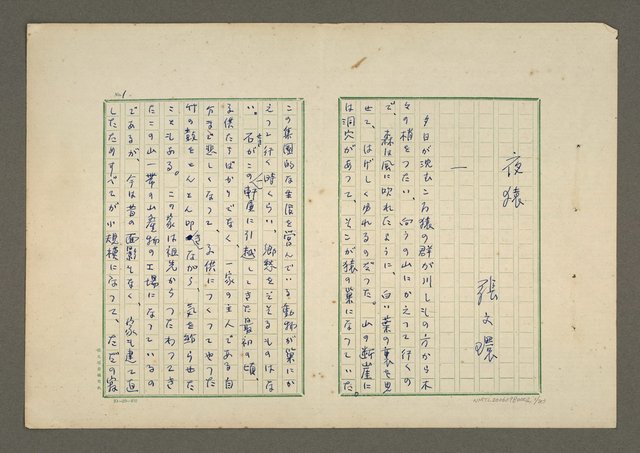 夜猿
張文環
一
夕日が沈むころ猿の群が川しもの方から木
々の梢をつたい、向うの山にかえって行くの
で、森は風に吹れたように、白い葉の裏を見
せて、はげしくゆれるのだった。山の断崖に
は洞穴があって、そこが猿の巣になっていた。
No. 1
この集團的な生活を営んでいる動物が巣にか
えって行く時くらい、郷愁をそそるものはな
い。石がこの軒屋に引越してきた最初の頃、
子供たちばかりでなく、一家の主人である自
分まで悲しくなって、子供につくってやった
竹の鼓をとんとん叩きながら、気を紛らせた
こともある。この家は祖先からつたわってき
たこの山一帯の山産物の工場になっているの
であるが、今は昔の面影もなく、家も建て直
したためすべてが小規模になって、ただの寂